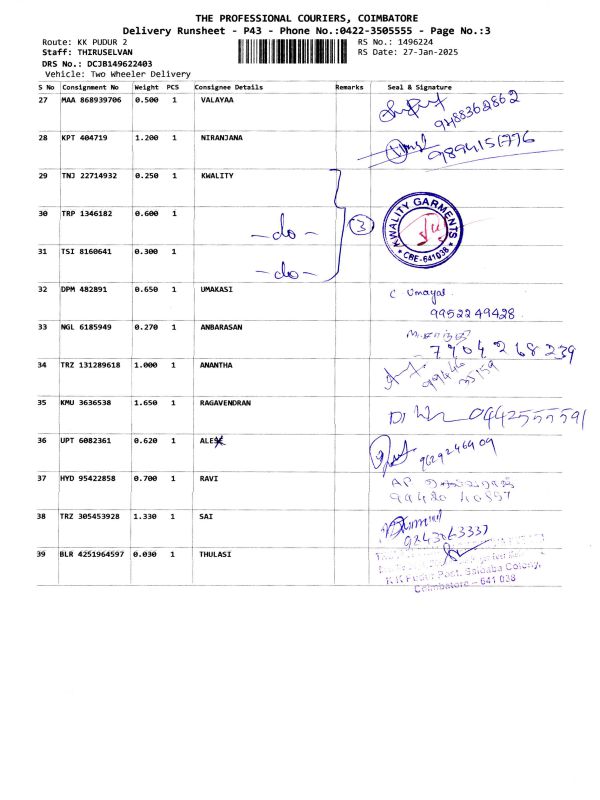 THE PROFESSIONAL COURIERS, COIMBATORE
Delivery Runsheet - P43 - Phone No.:0422-3505555 - Page No.:3
Route: KK PUDUR 2 RS No.: 1496224
Staff: THIRUSELVAN RS Date: 27-Jan-2025
DRS No.: DCJB149622403
Vehicle: Two Wheeler Delivery
S No Consignment No Weight PCS Consignee Details Remarks Seal & Signature
27 MAA 868939706 0.500 1 VALAYAA 9488362862
28 KPT 404719 1.200 1 NIRANJANA 9894151776
29 TNJ 22714932 0.250 1 KWALITY
KWALITY GARMENTS
* CBE-641038 *
30 TRP 1346182 0.600 1 -do- 3
31 TSI 8160641 0.300 1 -do-
32 DPM 482891 0.650 1 UMAKASI C Umayal
9952249428
33 NGL 6185949 0.270 1 ANBARASAN
7904268239
34 TRZ 131289618 1.000 1 ANANTHA 99446
35159
35 KMU 3636538 1.650 1 RAGAVENDRAN 04425555591
36 UPT 6082361 0.620 1 ALEX 9629246909
37 HYD 95422858 0.700 1 RAVI AP
99420 40897
38 TRZ 305453928 1.330 1 SAI
9243063337
39 BLR 4251964597 0.030 1 THULASI
K K Pudur Post, Saibaba Colony,
Coimbatore - 641 038